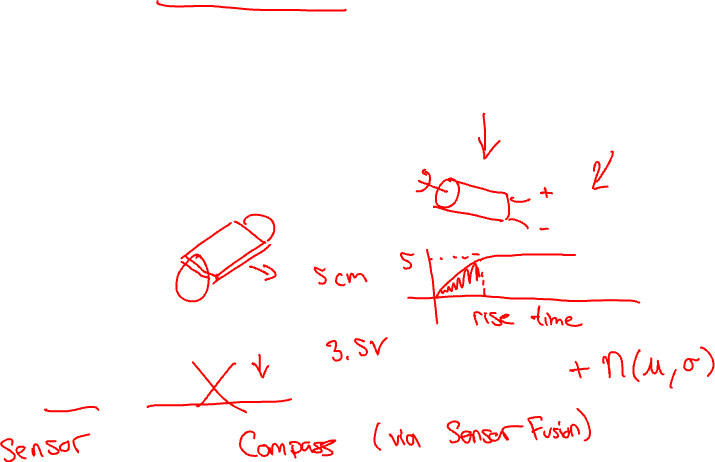 +
-
5
5 cm
rise time
3.5V
+ n(μ, σ)
Sensor Compass (via Sensor Fusion)